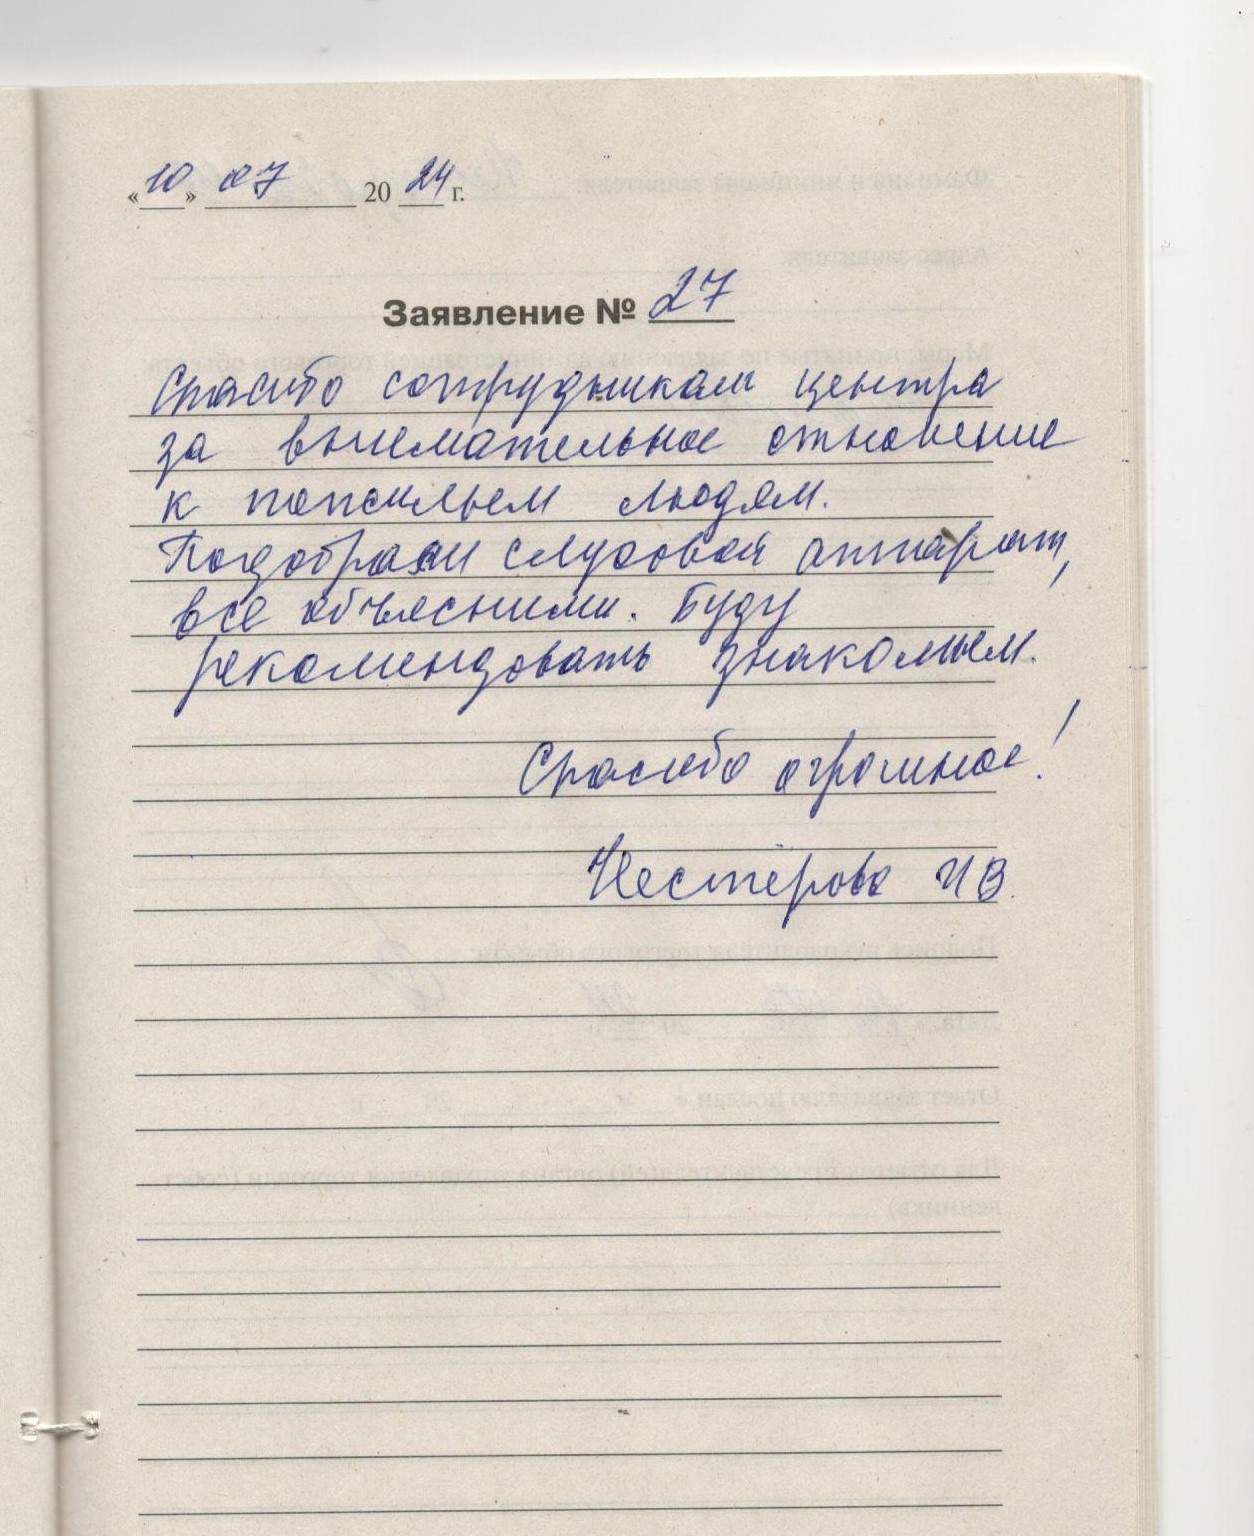 «10» 07 2024 г.
Заявление № 27
Спасибо сотрудникам центра
за внимательное отношение
к пожилым людям.
Подобрали слуховой аппарат,
все объяснили. Буду
рекомендовать знакомым.
Спасибо огромное!
Нестерова И В.